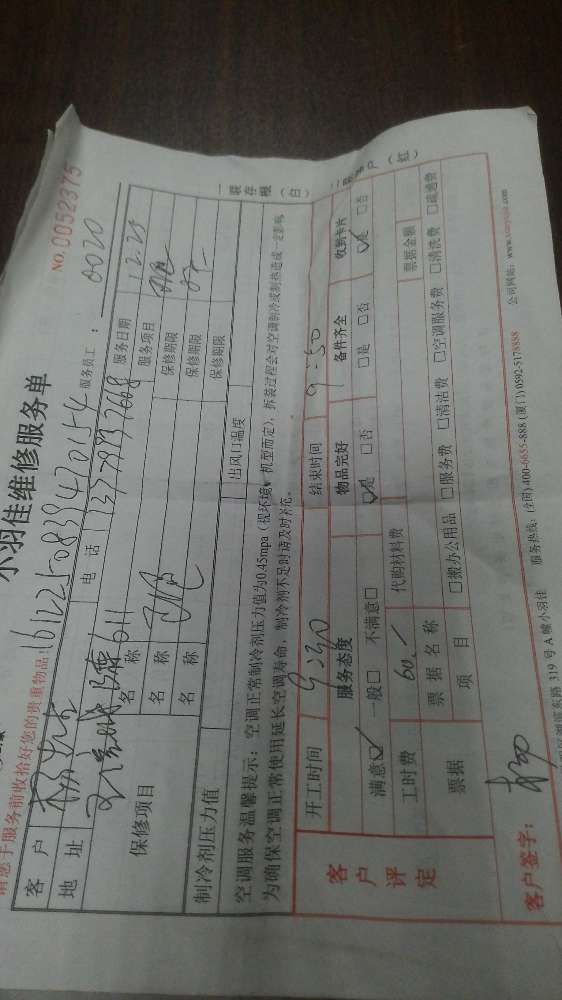 小羽佳维修服务单
NO.0052375
请您于服务前收拾好您的贵重物品!
161225083947
服务员工: 0020
客户
地址
电话
服务日期 12.25
保修项目
名称
服务项目
名称
保修期限
名称
保修期限
保修期限
制冷剂压力值
出风口温度
空调服务温馨提示:空调正常制冷剂压力值为0.45mpa(视环境、机型而定),拆装过程会对空调制冷或制热造成一定影响,
为确保空调正常使用延长空调寿命,制冷剂不足时请及时补充。
一联存根(白)
(红)
客户评定
开工时间 9:30
结束时间 9:50
服务态度
物品完好
备件齐全
收到卡片
满意☑ 一般□ 不满意□
☑是 □否
□是 □否
☑是 □否
工时费 60.-
代购材料费
票据
票据名称
票据金额
项目
□搬办公用品 □服务费 □清洁费 □空调服务费 □清洗费 □疏通费
客户签字:
湖滨东路 319 号 A 幢小羽佳
服务热线:(全国) 400-6655-888 (厦门) 0592-5178888
公司网站: www.xiaoyujia.com